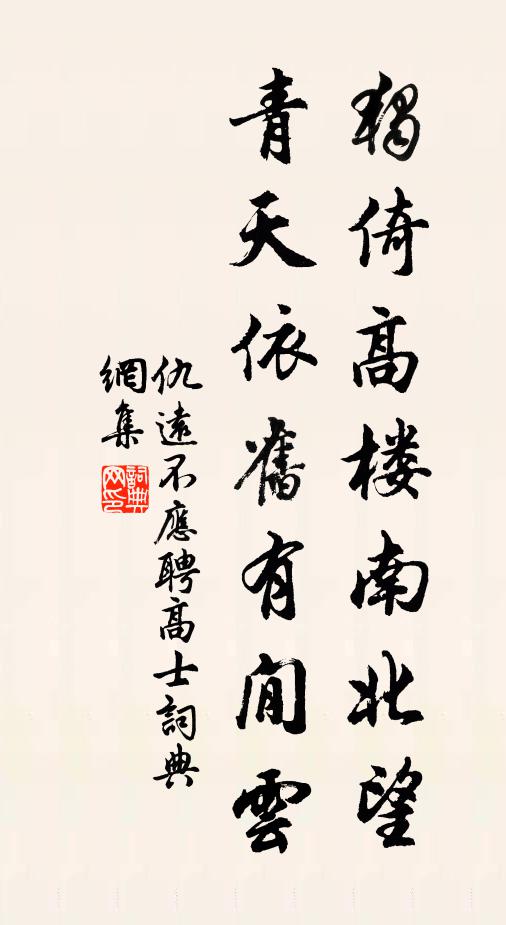 獨倚高樓南北望
青天依舊有閒雲
仇遠不應聘高士詞典
網集
詞典網印